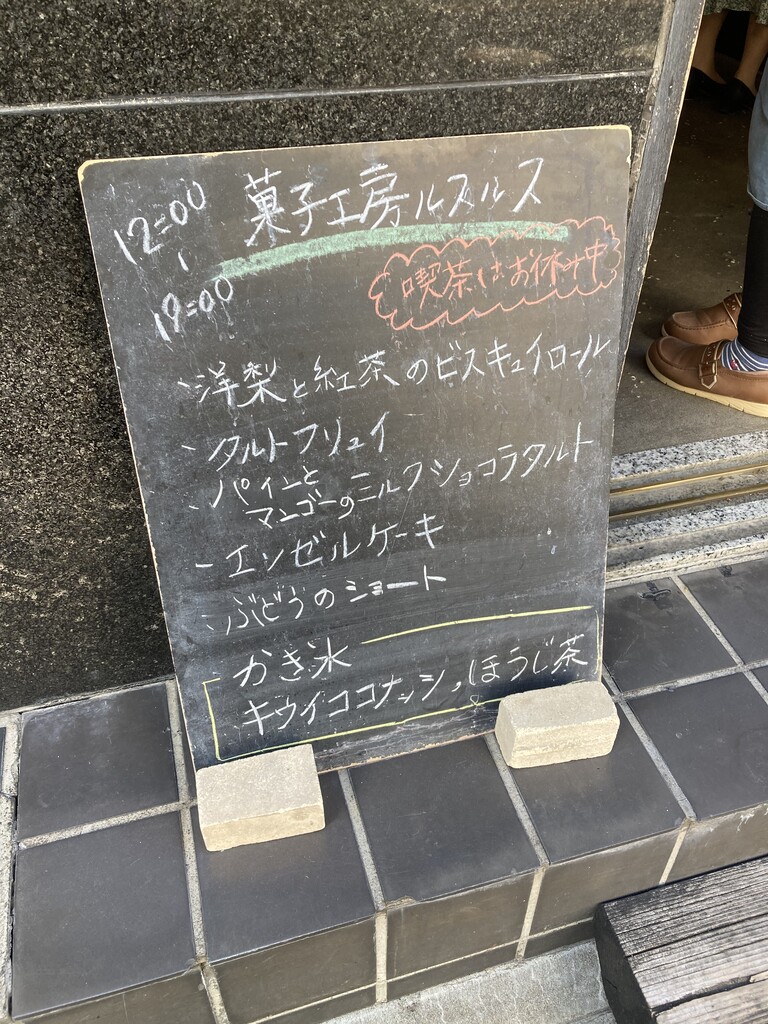 菓子工房ルスルス
12:00
〜
19:00
喫茶はお休み中
・洋梨と紅茶のビスキュイロール
・タルトフリュイ
・パインと
マンゴーのミルクショコラタルト
・エンゼルケーキ
・ぶどうのショート
かき氷
キウイココナッツ、ほうじ茶